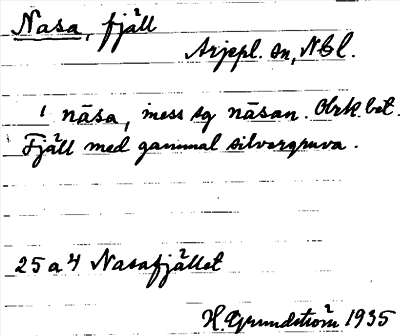 Nasa, fjäll
Arjepl. sn, Nbl.
1 nāsa, iness sg nāsan. Obrk. bet.
Fjäll med gammal silvergruva.
25 a 4 Nasafjället
H. Grundström 1935